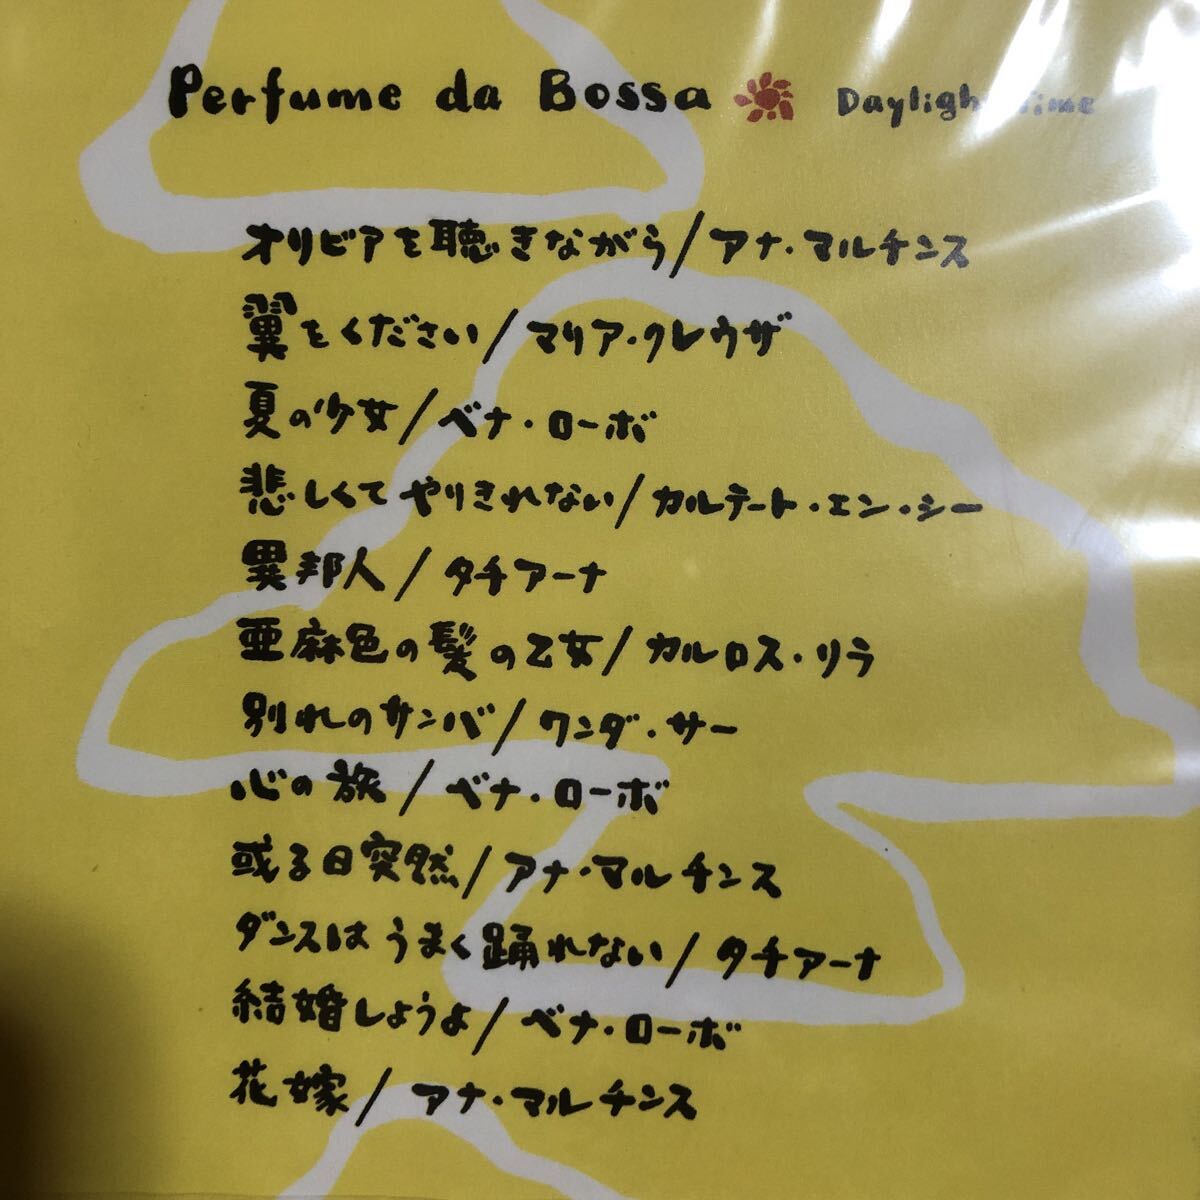 Perfume da Bossa Daylight Time
オリビアを聴きながら/アナ・マルチンス
翼をください/マリア・クレウザ
夏の少女/ベナ・ローボ
悲しくてやりきれない/カルテート・エン・シー
異邦人/タチアーナ
亜麻色の髪の乙女/カルロス・リラ
別れのサンバ/ワンダ・サー
心の旅/ベナ・ローボ
或る日突然/アナ・マルチンス
ダンスはうまく踊れない/タチアーナ
結婚しようよ/ベナ・ローボ
花嫁/アナ・マルチンス